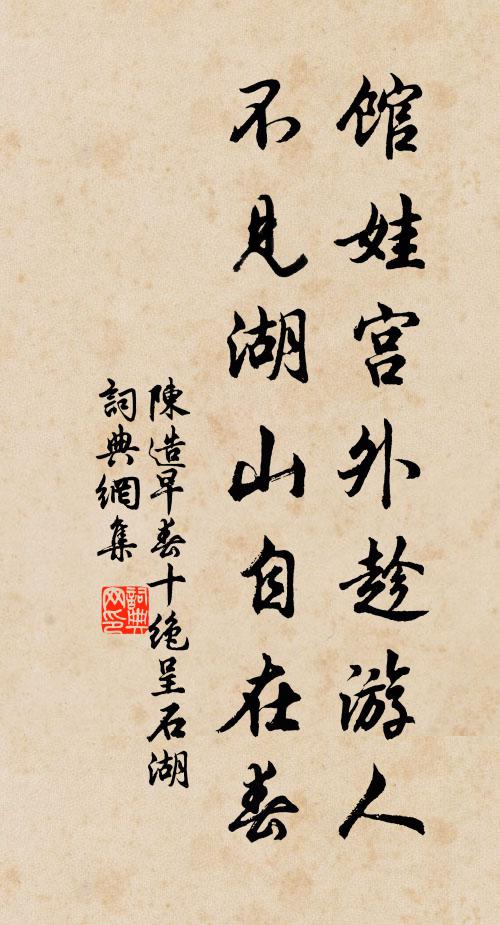 馆娃宫外趁游人
不見湖山自在春
陳造早春十绝呈石湖
詞典網集
詞典
网印